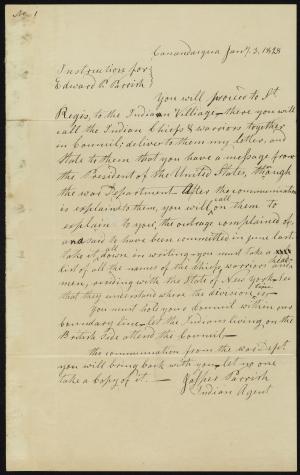 No 1
Canandaigua Jany. 3, 1828
Instructions for
Edward P. Parrish
You will proceed to St
Regis, to the Indian Village, there you will
call the Indian Chiefs & warriors together
in Council; deliver to them my letter, and
State to them that you have a message from
the President of the United States, through
the war Department. After the communication
is explained to them, you will call on them to
explain to you, the outrage complained of,
and said to have been committed in June last
take it all down in writing - you must take a
list of all the names of the chiefs, warriors and head-
men, residing with the State of New York. See
that they understand where the division line is
You must hold your Council within our
boundary line - let the Indians living on the
British side attend the Council -
the communication from the war dept
you will bring back with you - let no one
take a copy of it. -
Jasper Parrish
Indian Agent